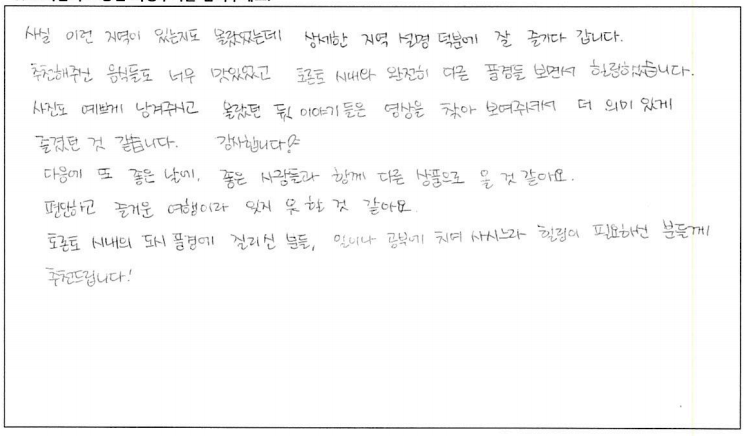 사실 이런 지역이 있는지도 몰랐었는데 상세한 지역 설명 덕분에 잘 즐기다 갑니다.
추천해주신 음식들도 너무 맛있었고 토론토 시내와 완전히 다른 풍경들 보면서 힐링했습니다.
사진도 예쁘게 남겨주시고 몰랐던 뒷 이야기들은 영상을 찾아 보여주셔서 더 의미 있게
즐겼던 것 같습니다. 감사합니다
다음에 또 좋은 날에, 좋은 사람들과 함께 다른 상품으로 올 것 같아요.
편안하고 즐거운 여행이라 잊지 못 할 것 같아요.
토론토 시내의 도시 풍경에 질리신 분들, 일이나 공부에 치여 사시느라 힐링이 필요하신 분들께
추천드립니다!